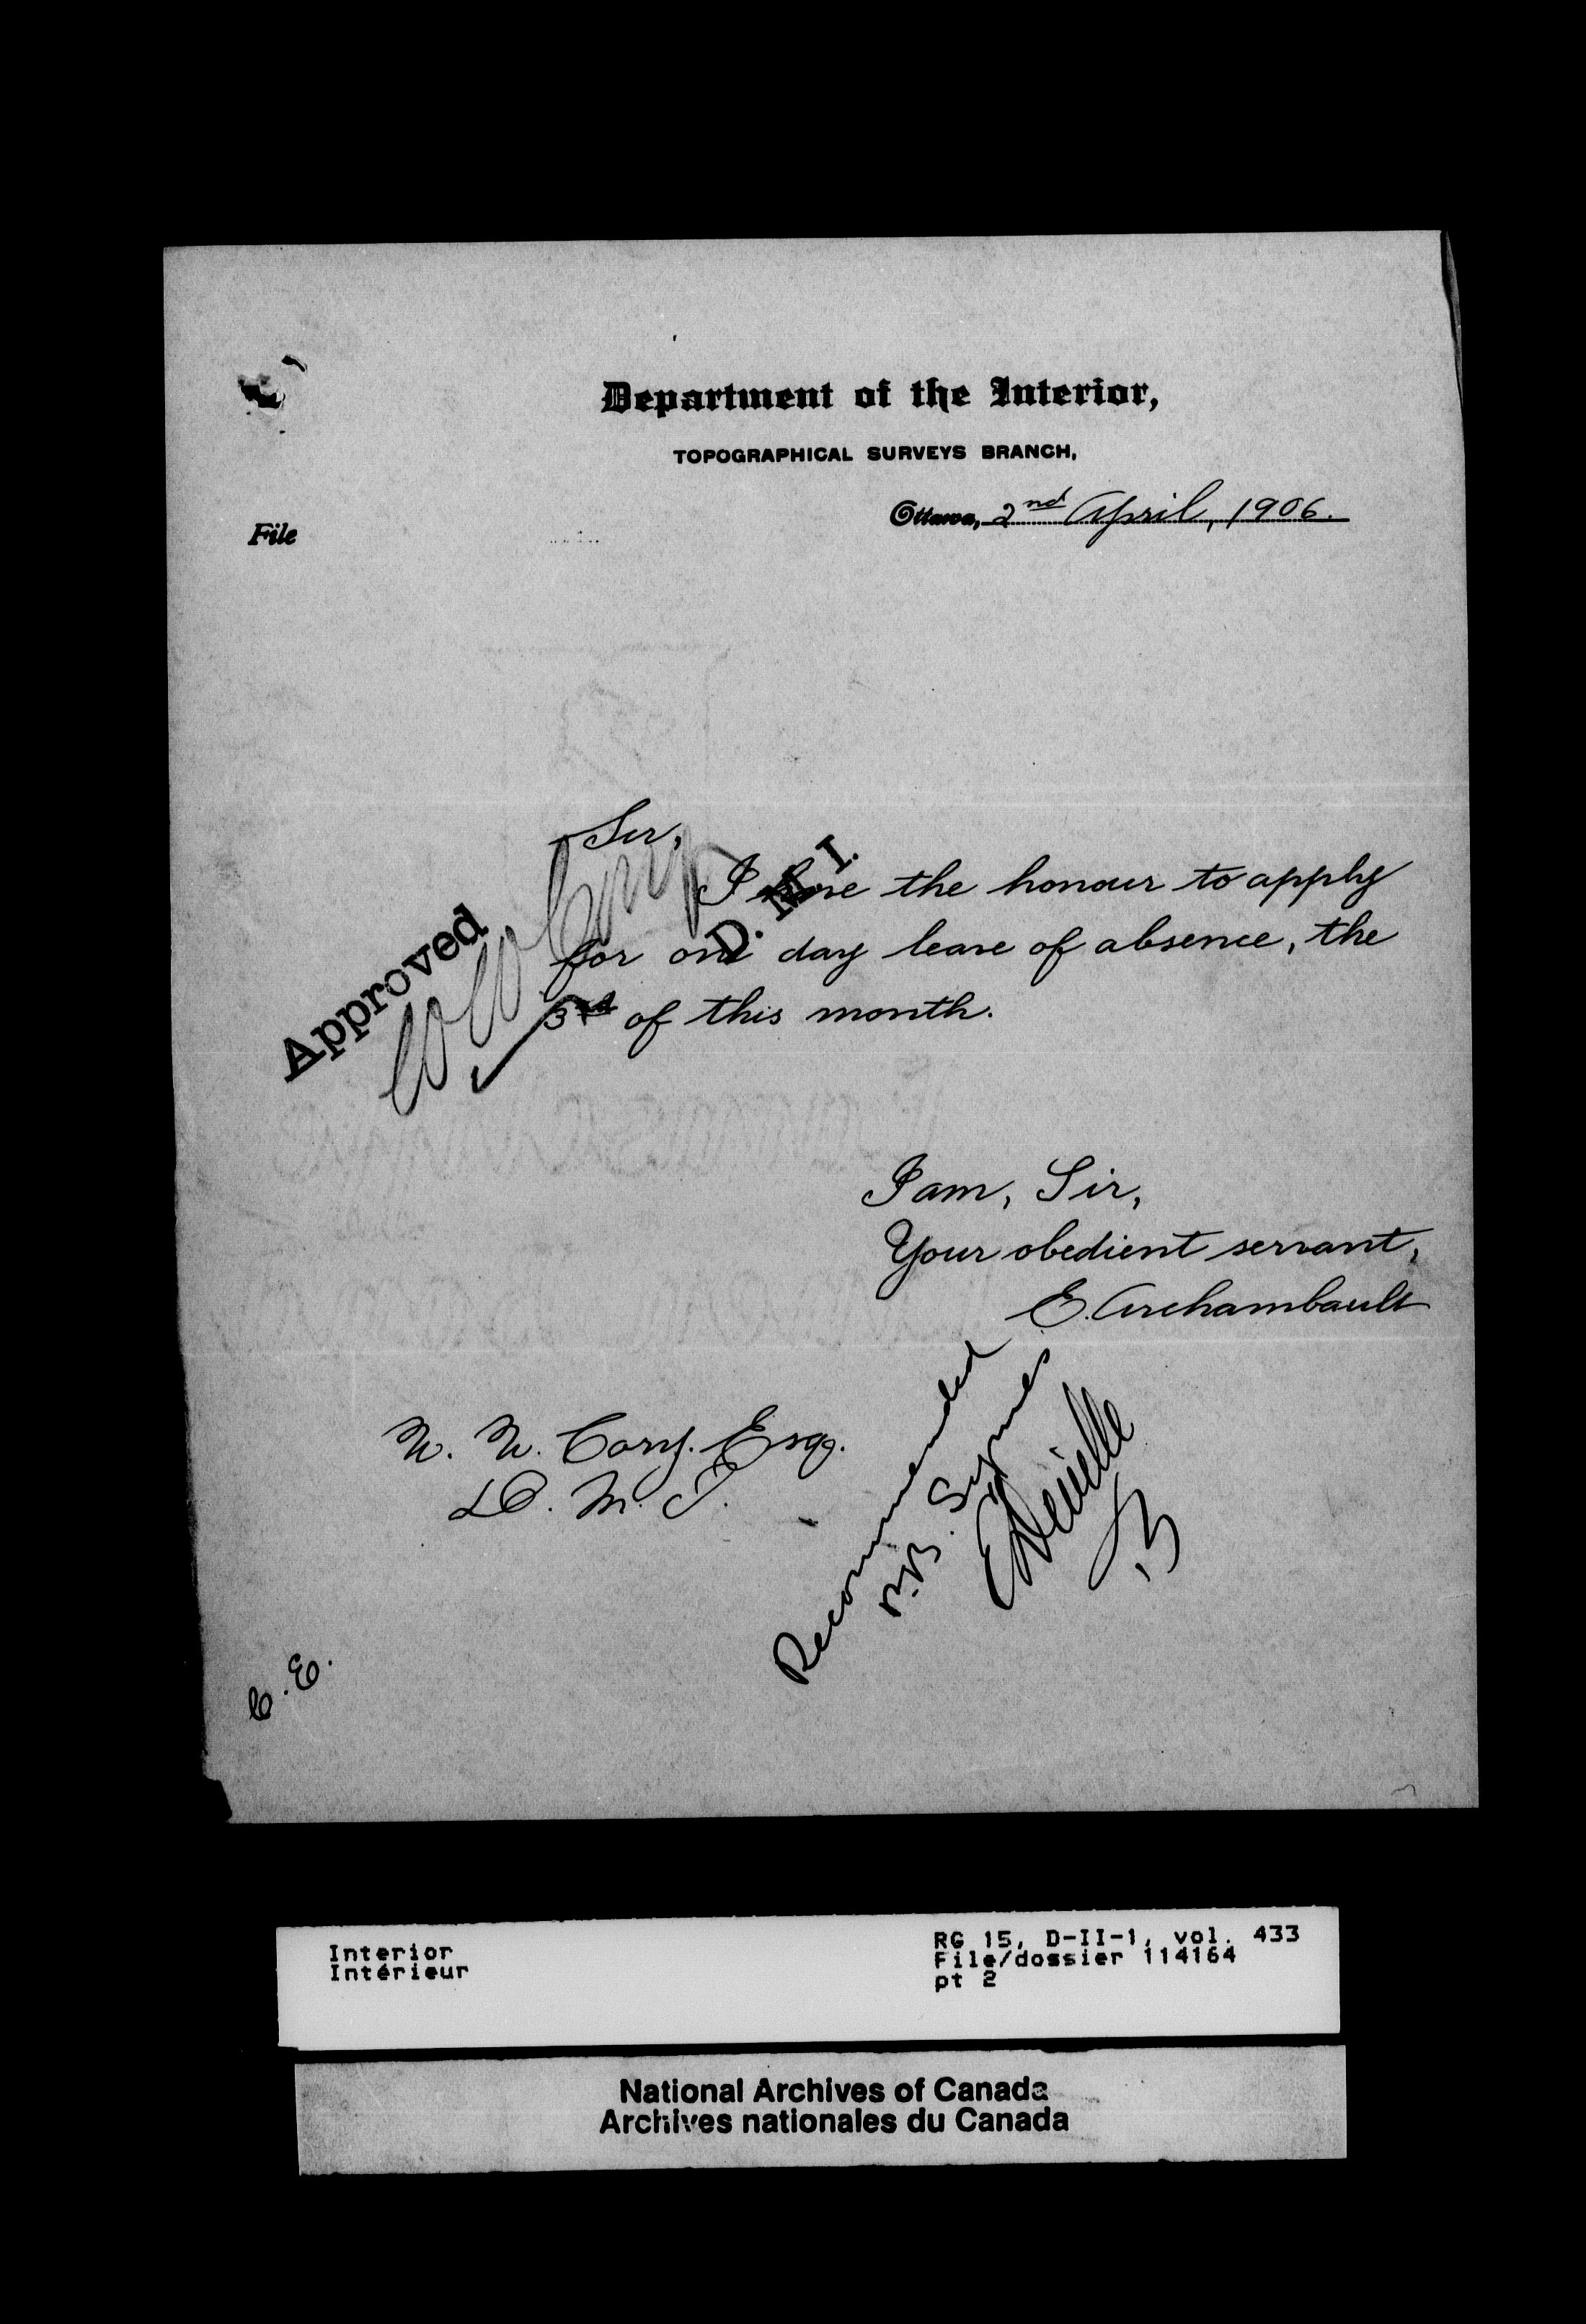 Department of the Interior,
TOPOGRAPHICAL SURVEYS BRANCH,
Ottawa, 2nd April, 1906.
File
Sir,
I have the honour to apply
for one day leave of absence, the
3rd of this month.
Approved
W W Cory
D. M. I.
I am, Sir,
Your obedient servant,
E. Archambault
W. W. Cory. Esq.
D. M. I.
Recommended
P.B. Symes
E Deville
C. E.
Interior
Intérieur
RG 15, D-II-1, vol. 433
File/dossier 114164
pt 2
National Archives of Canada
Archives nationales du Canada